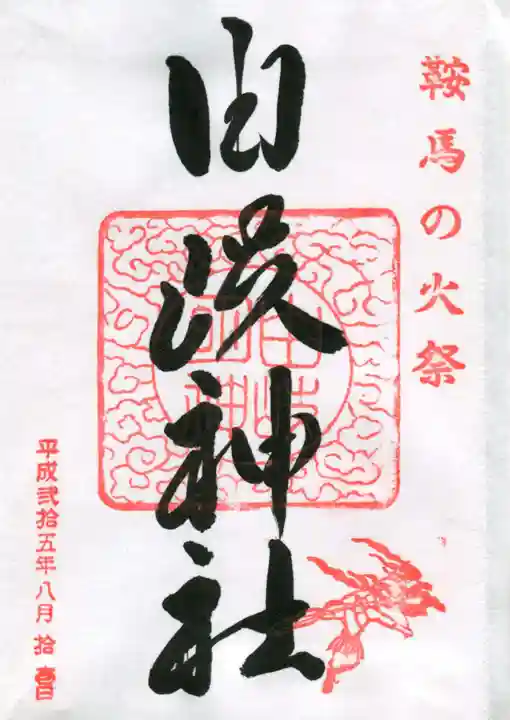 鞍馬の火祭
由岐神社
平成弐拾五年八月拾壱日